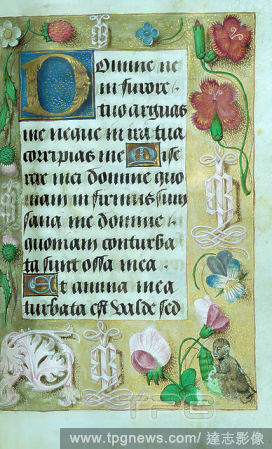 Domine ne
in furore
tuo arguas
me neque in ira tua
corripias me Mise
rere mei domine quo
niam infirmus sum
sana me domine
quoniam conturba
ta sunt ossa mea
Et anima mea
turbata est valde sed
TPG
www.tpgnews.com/達志影像